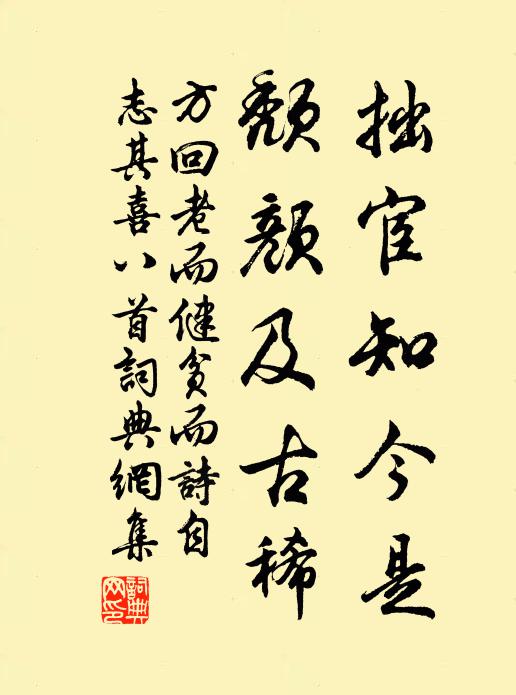 拙宦知今是
頹顏及古稀
方回老而健貧而詩自
志其喜八首詞典網集
詞典網印